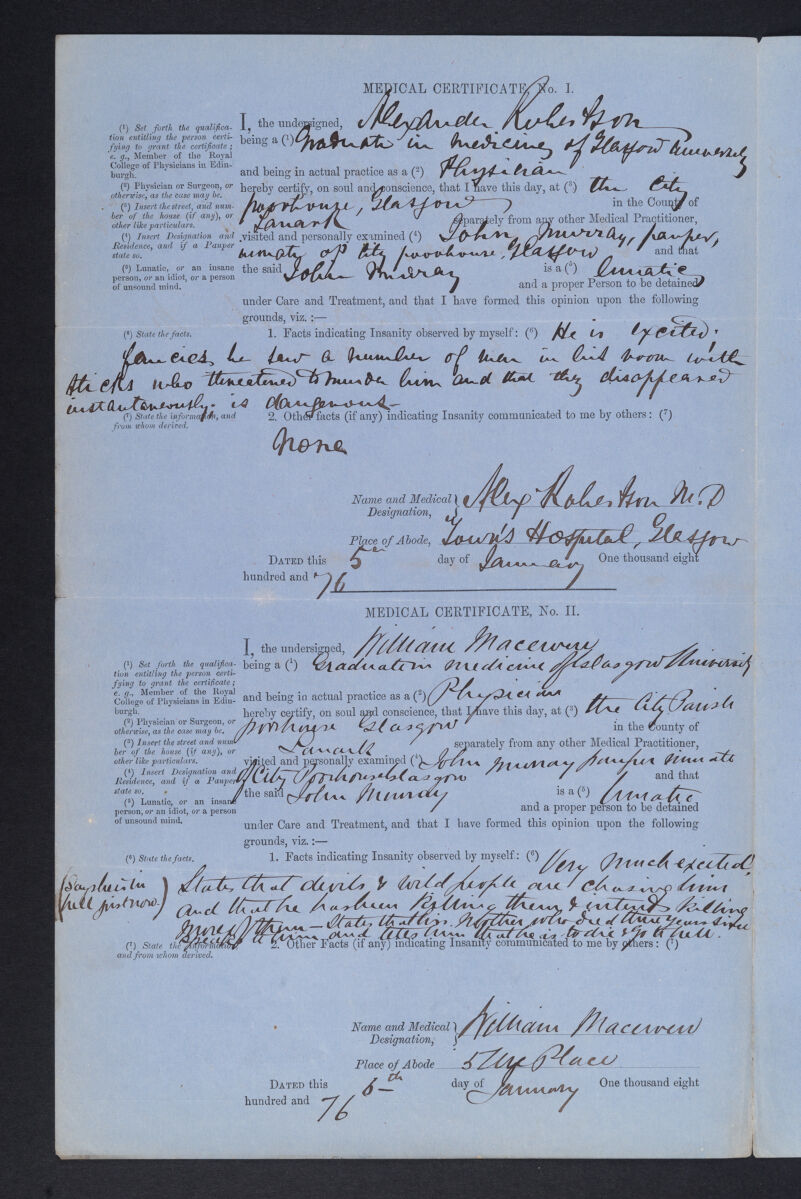 MEDICAL CERTIFICATE, No. I.
(¹) Set forth the qualifica-
tion entitling the person certi-
fying to grant the certificate;
e. g., Member of the Royal
College of Physicians in Edin-
burgh.
(²) Physician or Surgeon, or
otherwise, as the case may be.
(³) Insert the street, and num-
ber of the house (if any), or
other like particulars.
(⁴) Insert Designation and
Residence, and if a Pauper
state so.
(⁵) Lunatic, or an insane
person, or an idiot, or a person
of unsound mind.
I, the undersigned, Alexander Robertson
being a (¹) Graduate in medicine of Glasgow University
and being in actual practice as a (²) Physician
hereby certify, on soul and conscience, that I have this day, at (³) the City
poorhouse, Glasgow in the County of
Lanark separately from any other Medical Practitioner,
visited and personally examined (⁴) John Murray, pauper,
inmate of City poorhouse, Glasgow and that
the said John Murray is a (⁵) lunatic
and a proper Person to be detained
under Care and Treatment, and that I have formed this opinion upon the following
grounds, viz. :—
(⁶) State the facts. 1. Facts indicating Insanity observed by myself: (⁶) He is excited;
fancies he saw a number of men in his room with
sticks who threatened to murder him and that they disappeared
instantaneously; is dangerous—
(⁷) State the information, and
from whom derived.
2. Other facts (if any) indicating Insanity communicated to me by others: (⁷)
None
Name and Medical Designation, Alexr Robertson M.D
Place of Abode, Town's Hospital, Glasgow
DATED this 5th day of January One thousand eight
hundred and 76
MEDICAL CERTIFICATE, No. II.
(¹) Set forth the qualifica-
tion entitling the person certi-
fying to grant the certificate;
e. g., Member of the Royal
College of Physicians in Edin-
burgh.
(²) Physician or Surgeon, or
otherwise, as the case may be.
(³) Insert the street and num-
ber of the house (if any), or
other like particulars.
(⁴) Insert Designation and
Residence, and if a Pauper
state so.
(⁵) Lunatic, or an insane
person, or an idiot, or a person
of unsound mind.
I, the undersigned, William Macewen
being a (¹) Graduate in medicine of Glasgow University
and being in actual practice as a (²) Physician
hereby certify, on soul and conscience, that I have this day, at (³) the City Parish
poorhouse Glasgow in the County of
Lanark separately from any other Medical Practitioner,
visited and personally examined (⁴) John Murray pauper inmate
of City Poorhouse Glasgow and that
the said John Murray is a (⁵) lunatic
and a proper person to be detained
under Care and Treatment, and that I have formed this opinion upon the following
grounds, viz. :—
(⁶) State the facts. 1. Facts indicating Insanity observed by myself: (⁶) Very much excited.
(Says he is in
hell just now.)
States that devils & wild people are chasing him
and that he has been killing them & intends killing
more of them – States that his Mother who died three years since
speaks to him and tells him that he is to die & go to hell.
(⁷) State the information,
and from whom derived.
2. Other Facts (if any) indicating Insanity communicated to me by others: (⁷)
Name and Medical Designation, William Macewen
Place of Abode 5 Place
DATED this 5th day of January One thousand eight
hundred and 76